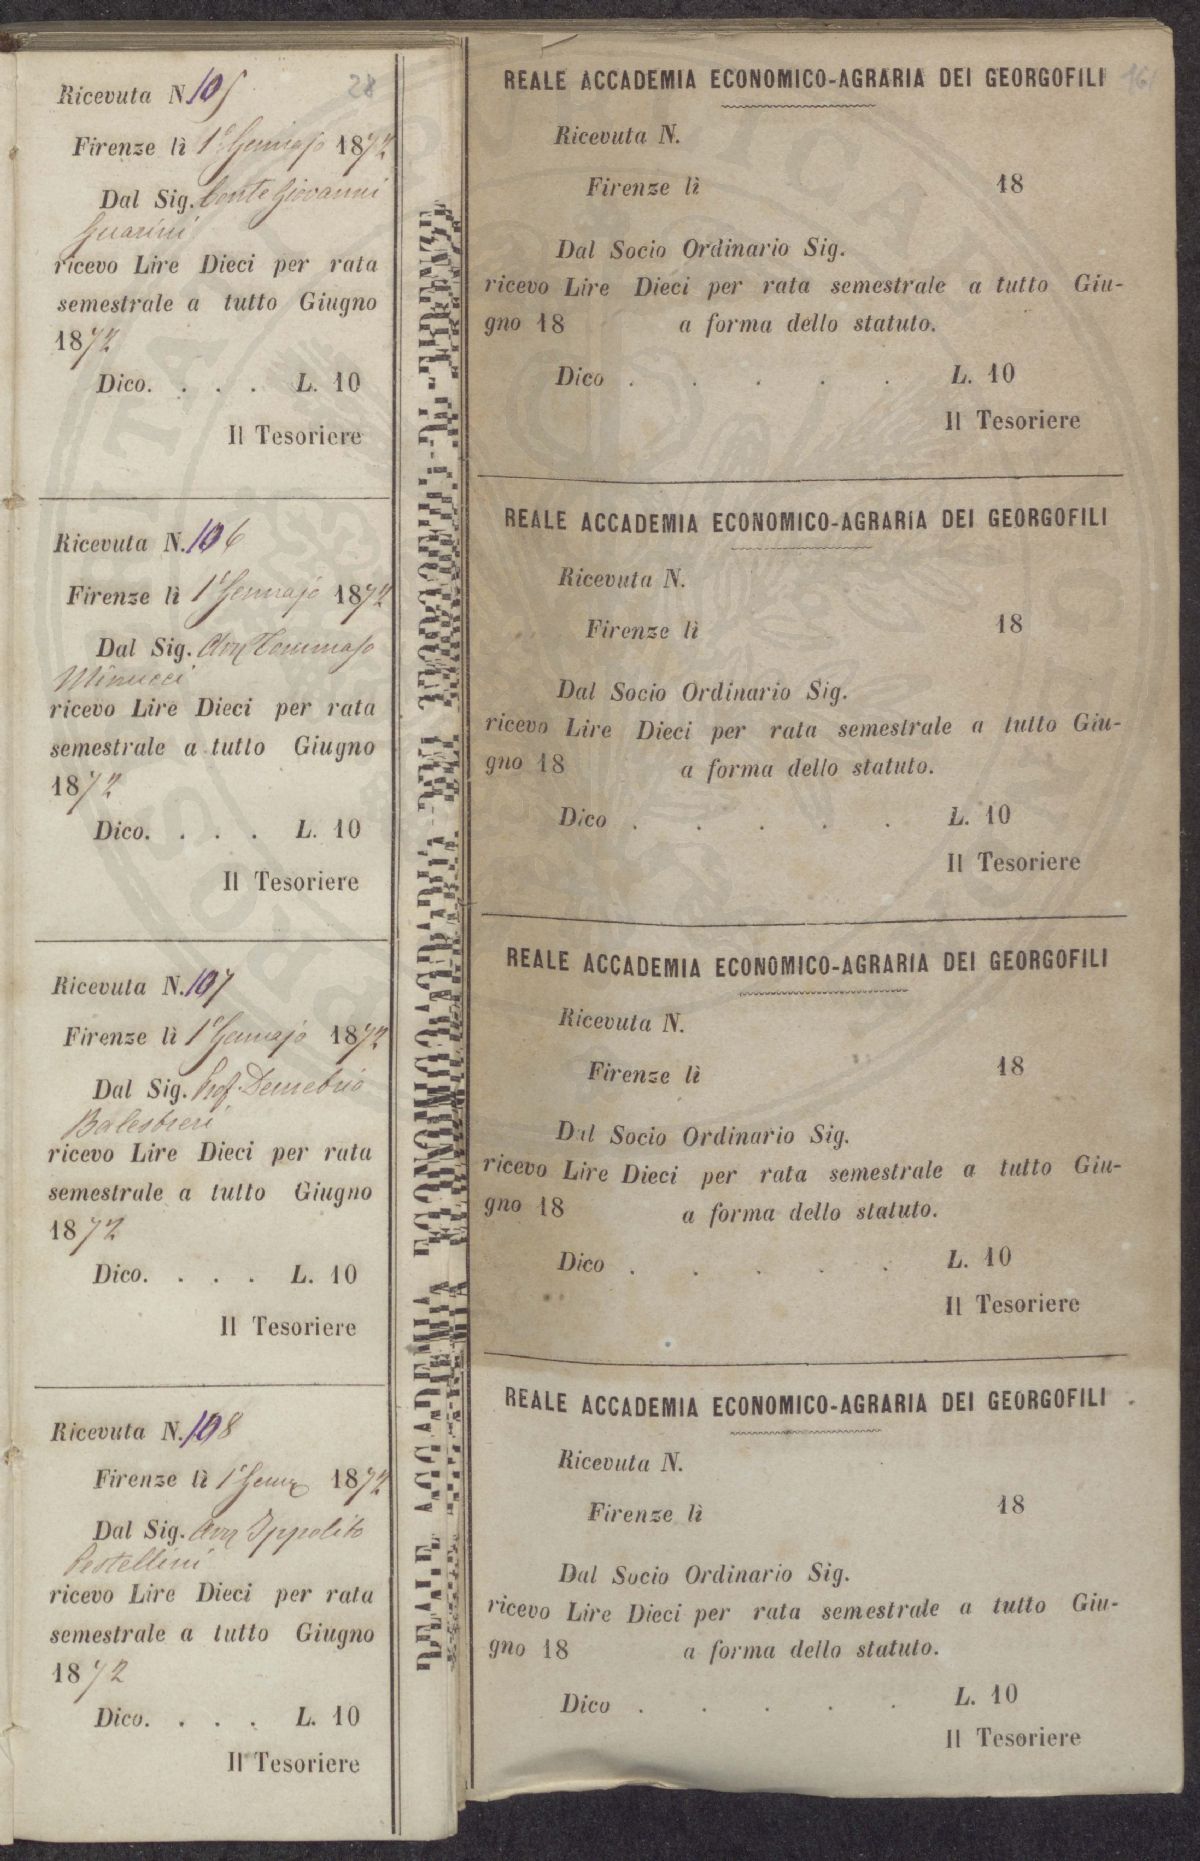 28
Ricevuta N. 105
Firenze lì 1° Gennajo 1872
Dal Sig. Conte Giovanni
Guarini
ricevo Lire Dieci per rata
semestrale a tutto Giugno
1872
Dico. . . . L. 10
Il Tesoriere
Ricevuta N. 106
Firenze lì 1° Gennajo 1872
Dal Sig. Avv Tommaso
Minucci
ricevo Lire Dieci per rata
semestrale a tutto Giugno
1872
Dico. . . . L. 10
Il Tesoriere
Ricevuta N. 107
Firenze lì 1° Gennajo 1872
Dal Sig. Prof. Demetrio
Balestreri
ricevo Lire Dieci per rata
semestrale a tutto Giugno
1872
Dico. . . . L. 10
Il Tesoriere
Ricevuta N. 108
Firenze lì 1° 1872
Dal Sig. Avv Ippolito
Pestellini
ricevo Lire Dieci per rata
semestrale a tutto Giugno
1872
Dico. . . . L. 10
Il Tesoriere
REALE ACCADEMIA ECONOMICO-AGRARIA DEI GEORGOFILI DI FIRENZE
161
REALE ACCADEMIA ECONOMICO-AGRARIA DEI GEORGOFILI
Ricevuta N.
Firenze lì 18
Dal Socio Ordinario Sig.
ricevo Lire Dieci per rata semestrale a tutto Giu-
gno 18 a forma dello statuto.
Dico . . . . . L. 10
Il Tesoriere
REALE ACCADEMIA ECONOMICO-AGRARIA DEI GEORGOFILI
Ricevuta N.
Firenze lì 18
Dal Socio Ordinario Sig.
ricevo Lire Dieci per rata semestrale a tutto Giu-
gno 18 a forma dello statuto.
Dico . . . . . L. 10
Il Tesoriere
REALE ACCADEMIA ECONOMICO-AGRARIA DEI GEORGOFILI
Ricevuta N.
Firenze lì 18
Dal Socio Ordinario Sig.
ricevo Lire Dieci per rata semestrale a tutto Giu-
gno 18 a forma dello statuto.
Dico . . . . . L. 10
Il Tesoriere
REALE ACCADEMIA ECONOMICO-AGRARIA DEI GEORGOFILI
Ricevuta N.
Firenze lì 18
Dal Socio Ordinario Sig.
ricevo Lire Dieci per rata semestrale a tutto Giu-
gno 18 a forma dello statuto.
Dico . . . . . L. 10
Il Tesoriere